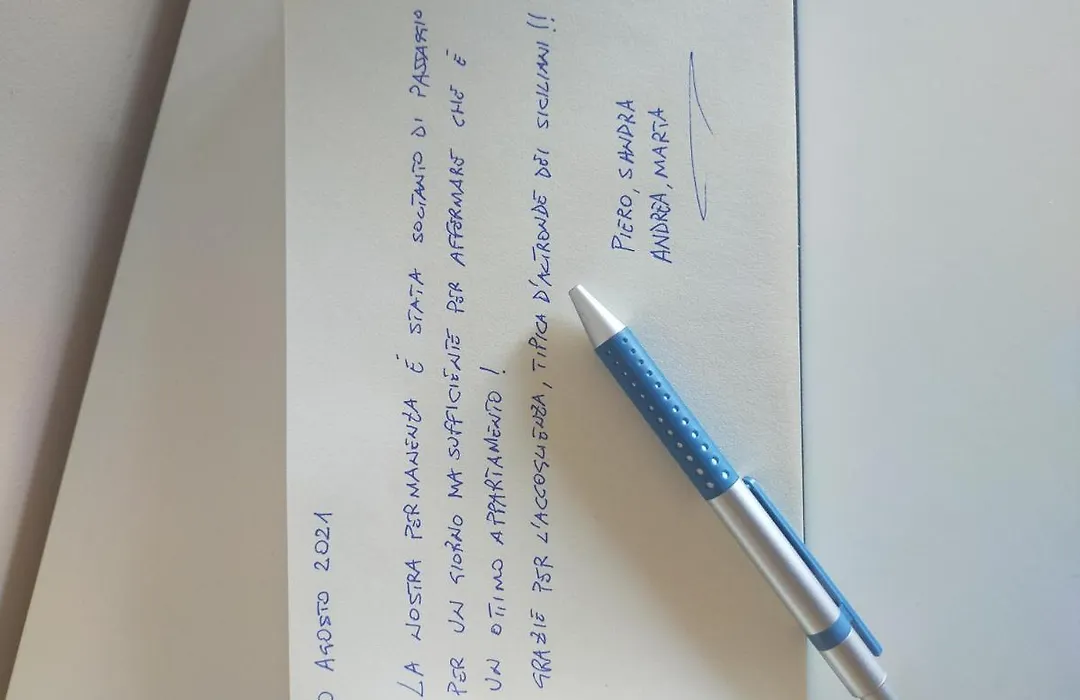 AGOSTO 2021
LA NOSTRA PERMANENZA É STATA SOLTANTO DI PASSAGGIO
PER UN GIORNO MA SUFFICIENTE PER AFFERMARE CHE È
UN OTTIMO APPARTAMENTO!
GRAZIE PER L'ACCOGLIENZA, TIPICA D'ALTRONDE DEI SICILIANI!!
PIERO, SANDRA
ANDREA, MARTA